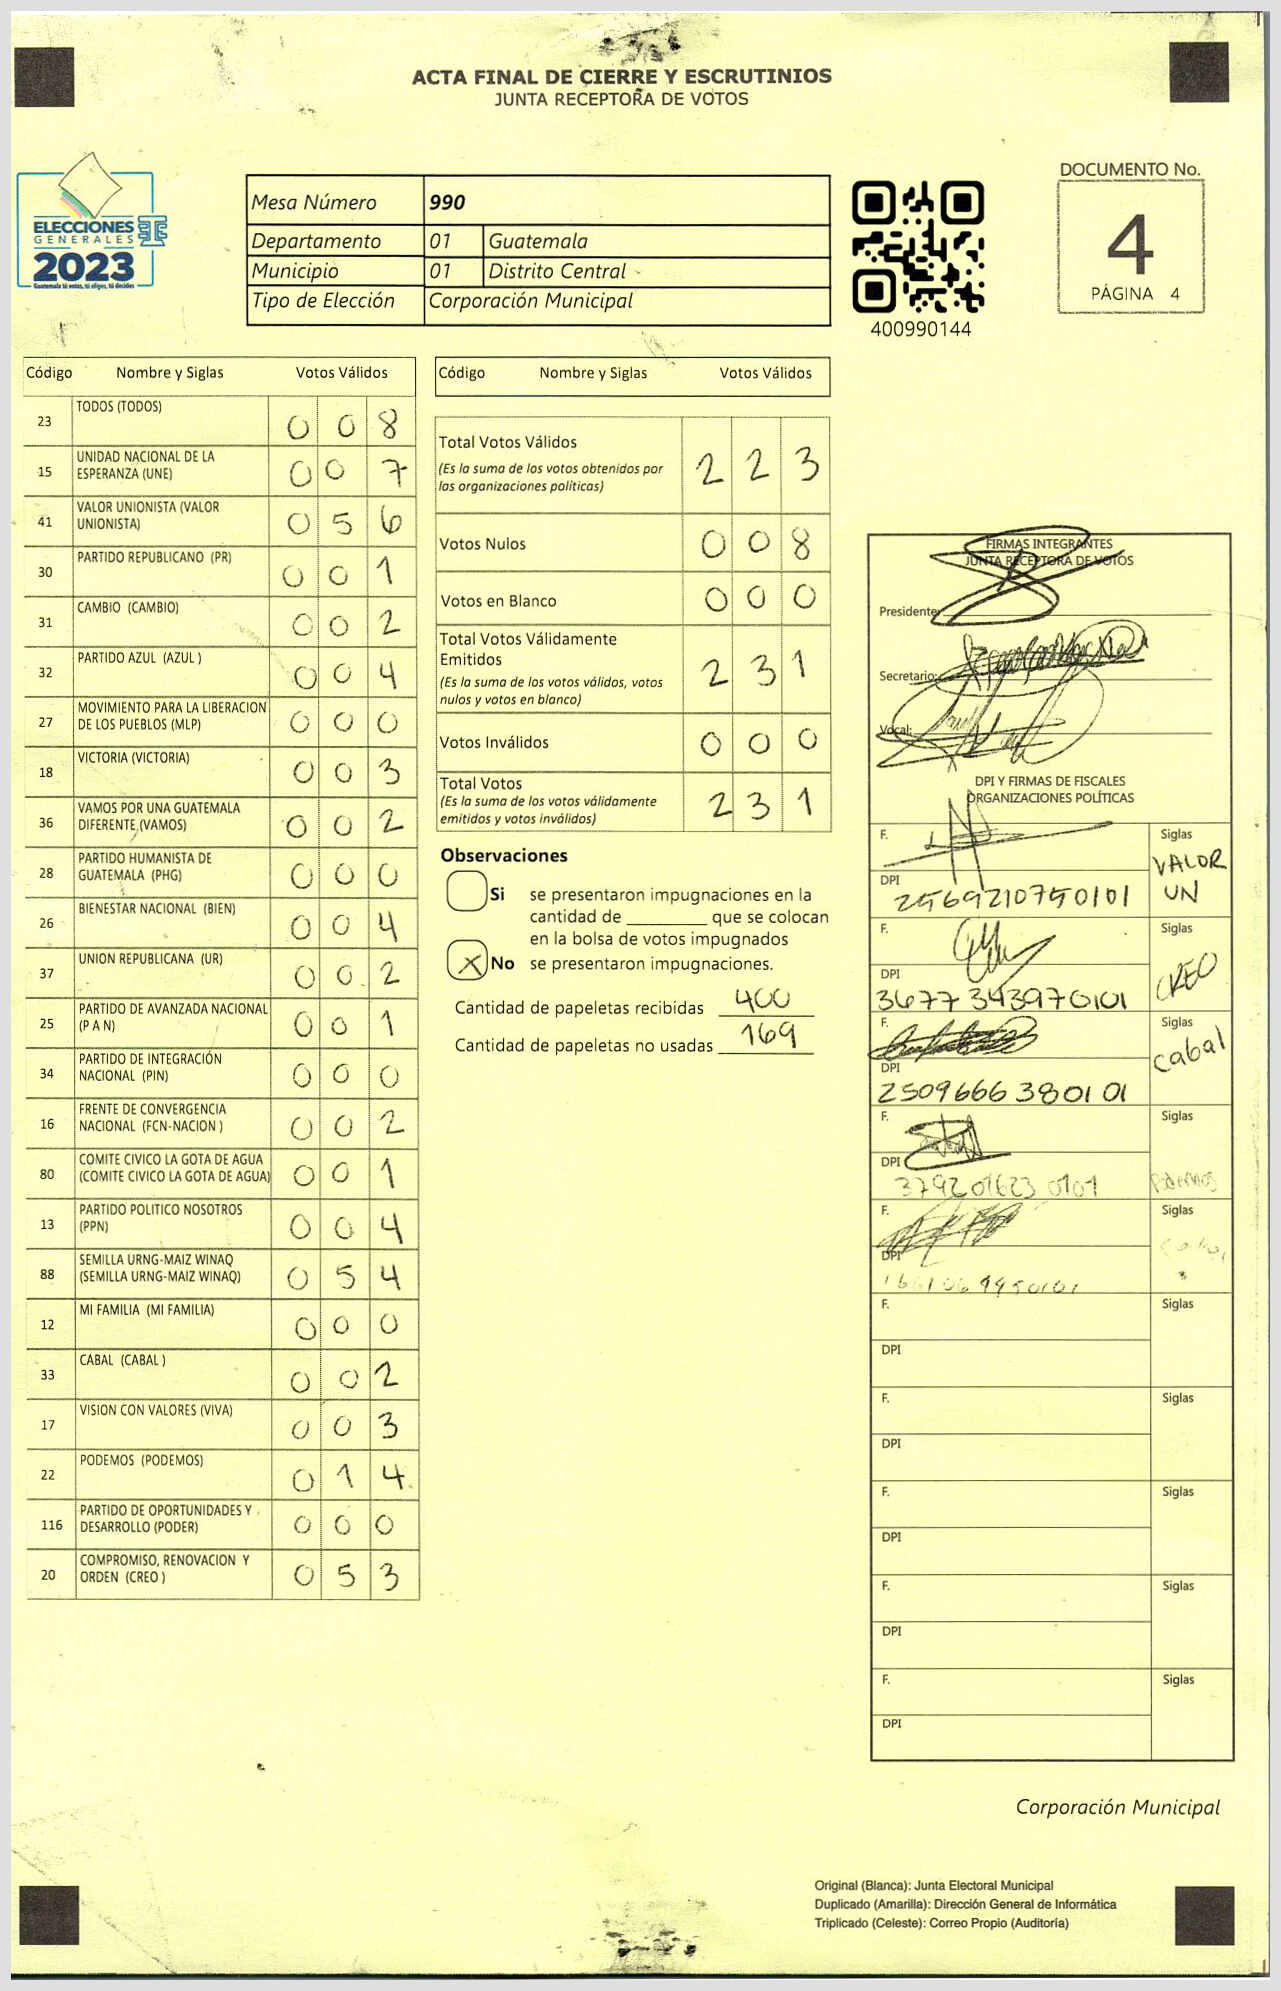 ACTA FINAL DE CIERRE Y ESCRUTINIOS
JUNTA RECEPTORA DE VOTOS
ELECCIONES
GENERALES
2023
Guatemala tú votas, tú eliges, tú decides
Mesa Número 990
Departamento 01 Guatemala
Municipio 01 Distrito Central
Tipo de Elección Corporación Municipal
400990144
DOCUMENTO No.
4
PÁGINA 4
Código Nombre y Siglas Votos Válidos
23 TODOS (TODOS) 0 0 8
15 UNIDAD NACIONAL DE LA
ESPERANZA (UNE) 0 0 7
41 VALOR UNIONISTA (VALOR
UNIONISTA) 0 5 6
30 PARTIDO REPUBLICANO (PR) 0 0 1
31 CAMBIO (CAMBIO) 0 0 2
32 PARTIDO AZUL (AZUL ) 0 0 4
27 MOVIMIENTO PARA LA LIBERACION
DE LOS PUEBLOS (MLP) 0 0 0
18 VICTORIA (VICTORIA) 0 0 3
36 VAMOS POR UNA GUATEMALA
DIFERENTE (VAMOS) 0 0 2
28 PARTIDO HUMANISTA DE
GUATEMALA (PHG) 0 0 0
26 BIENESTAR NACIONAL (BIEN) 0 0 4
37 UNION REPUBLICANA (UR) 0 0 2
25 PARTIDO DE AVANZADA NACIONAL
(P A N) 0 0 1
34 PARTIDO DE INTEGRACIÓN
NACIONAL (PIN) 0 0 0
16 FRENTE DE CONVERGENCIA
NACIONAL (FCN-NACION ) 0 0 2
80 COMITE CIVICO LA GOTA DE AGUA
(COMITE CIVICO LA GOTA DE AGUA) 0 0 1
13 PARTIDO POLITICO NOSOTROS
(PPN) 0 0 4
88 SEMILLA URNG-MAIZ WINAQ
(SEMILLA URNG-MAIZ WINAQ) 0 5 4
12 MI FAMILIA (MI FAMILIA) 0 0 0
33 CABAL (CABAL ) 0 0 2
17 VISION CON VALORES (VIVA) 0 0 3
22 PODEMOS (PODEMOS) 0 1 4
116 PARTIDO DE OPORTUNIDADES Y
DESARROLLO (PODER) 0 0 0
20 COMPROMISO, RENOVACION Y
ORDEN (CREO ) 0 5 3
Código Nombre y Siglas Votos Válidos
Total Votos Válidos 2 2 3
(Es la suma de los votos obtenidos por
las organizaciones políticas)
Votos Nulos 0 0 8
Votos en Blanco 0 0 0
Total Votos Válidamente
Emitidos 2 3 1
(Es la suma de los votos válidos, votos
nulos y votos en blanco)
Votos Inválidos 0 0 0
Total Votos 2 3 1
(Es la suma de los votos válidamente
emitidos y votos inválidos)
Observaciones
Si se presentaron impugnaciones en la
cantidad de ________ que se colocan
en la bolsa de votos impugnados
X No se presentaron impugnaciones.
Cantidad de papeletas recibidas 400
Cantidad de papeletas no usadas 169
FIRMAS INTEGRANTES
JUNTA RECEPTORA DE VOTOS
Presidente:
Secretario:
Vocal:
DPI Y FIRMAS DE FISCALES
ORGANIZACIONES POLÍTICAS
F. Siglas
VALOR
UN
DPI
2569210750101
F. Siglas
CREO
DPI
3677343970101
F. Siglas
Cabal
DPI
2509666380101
F. Siglas
Podemos
DPI
3792016230101
F. Siglas
DPI
F. Siglas
DPI
F. Siglas
DPI
F. Siglas
DPI
F. Siglas
DPI
F. Siglas
DPI
Corporación Municipal
Original (Blanca): Junta Electoral Municipal
Duplicado (Amarilla): Dirección General de Informática
Triplicado (Celeste): Correo Propio (Auditoría)